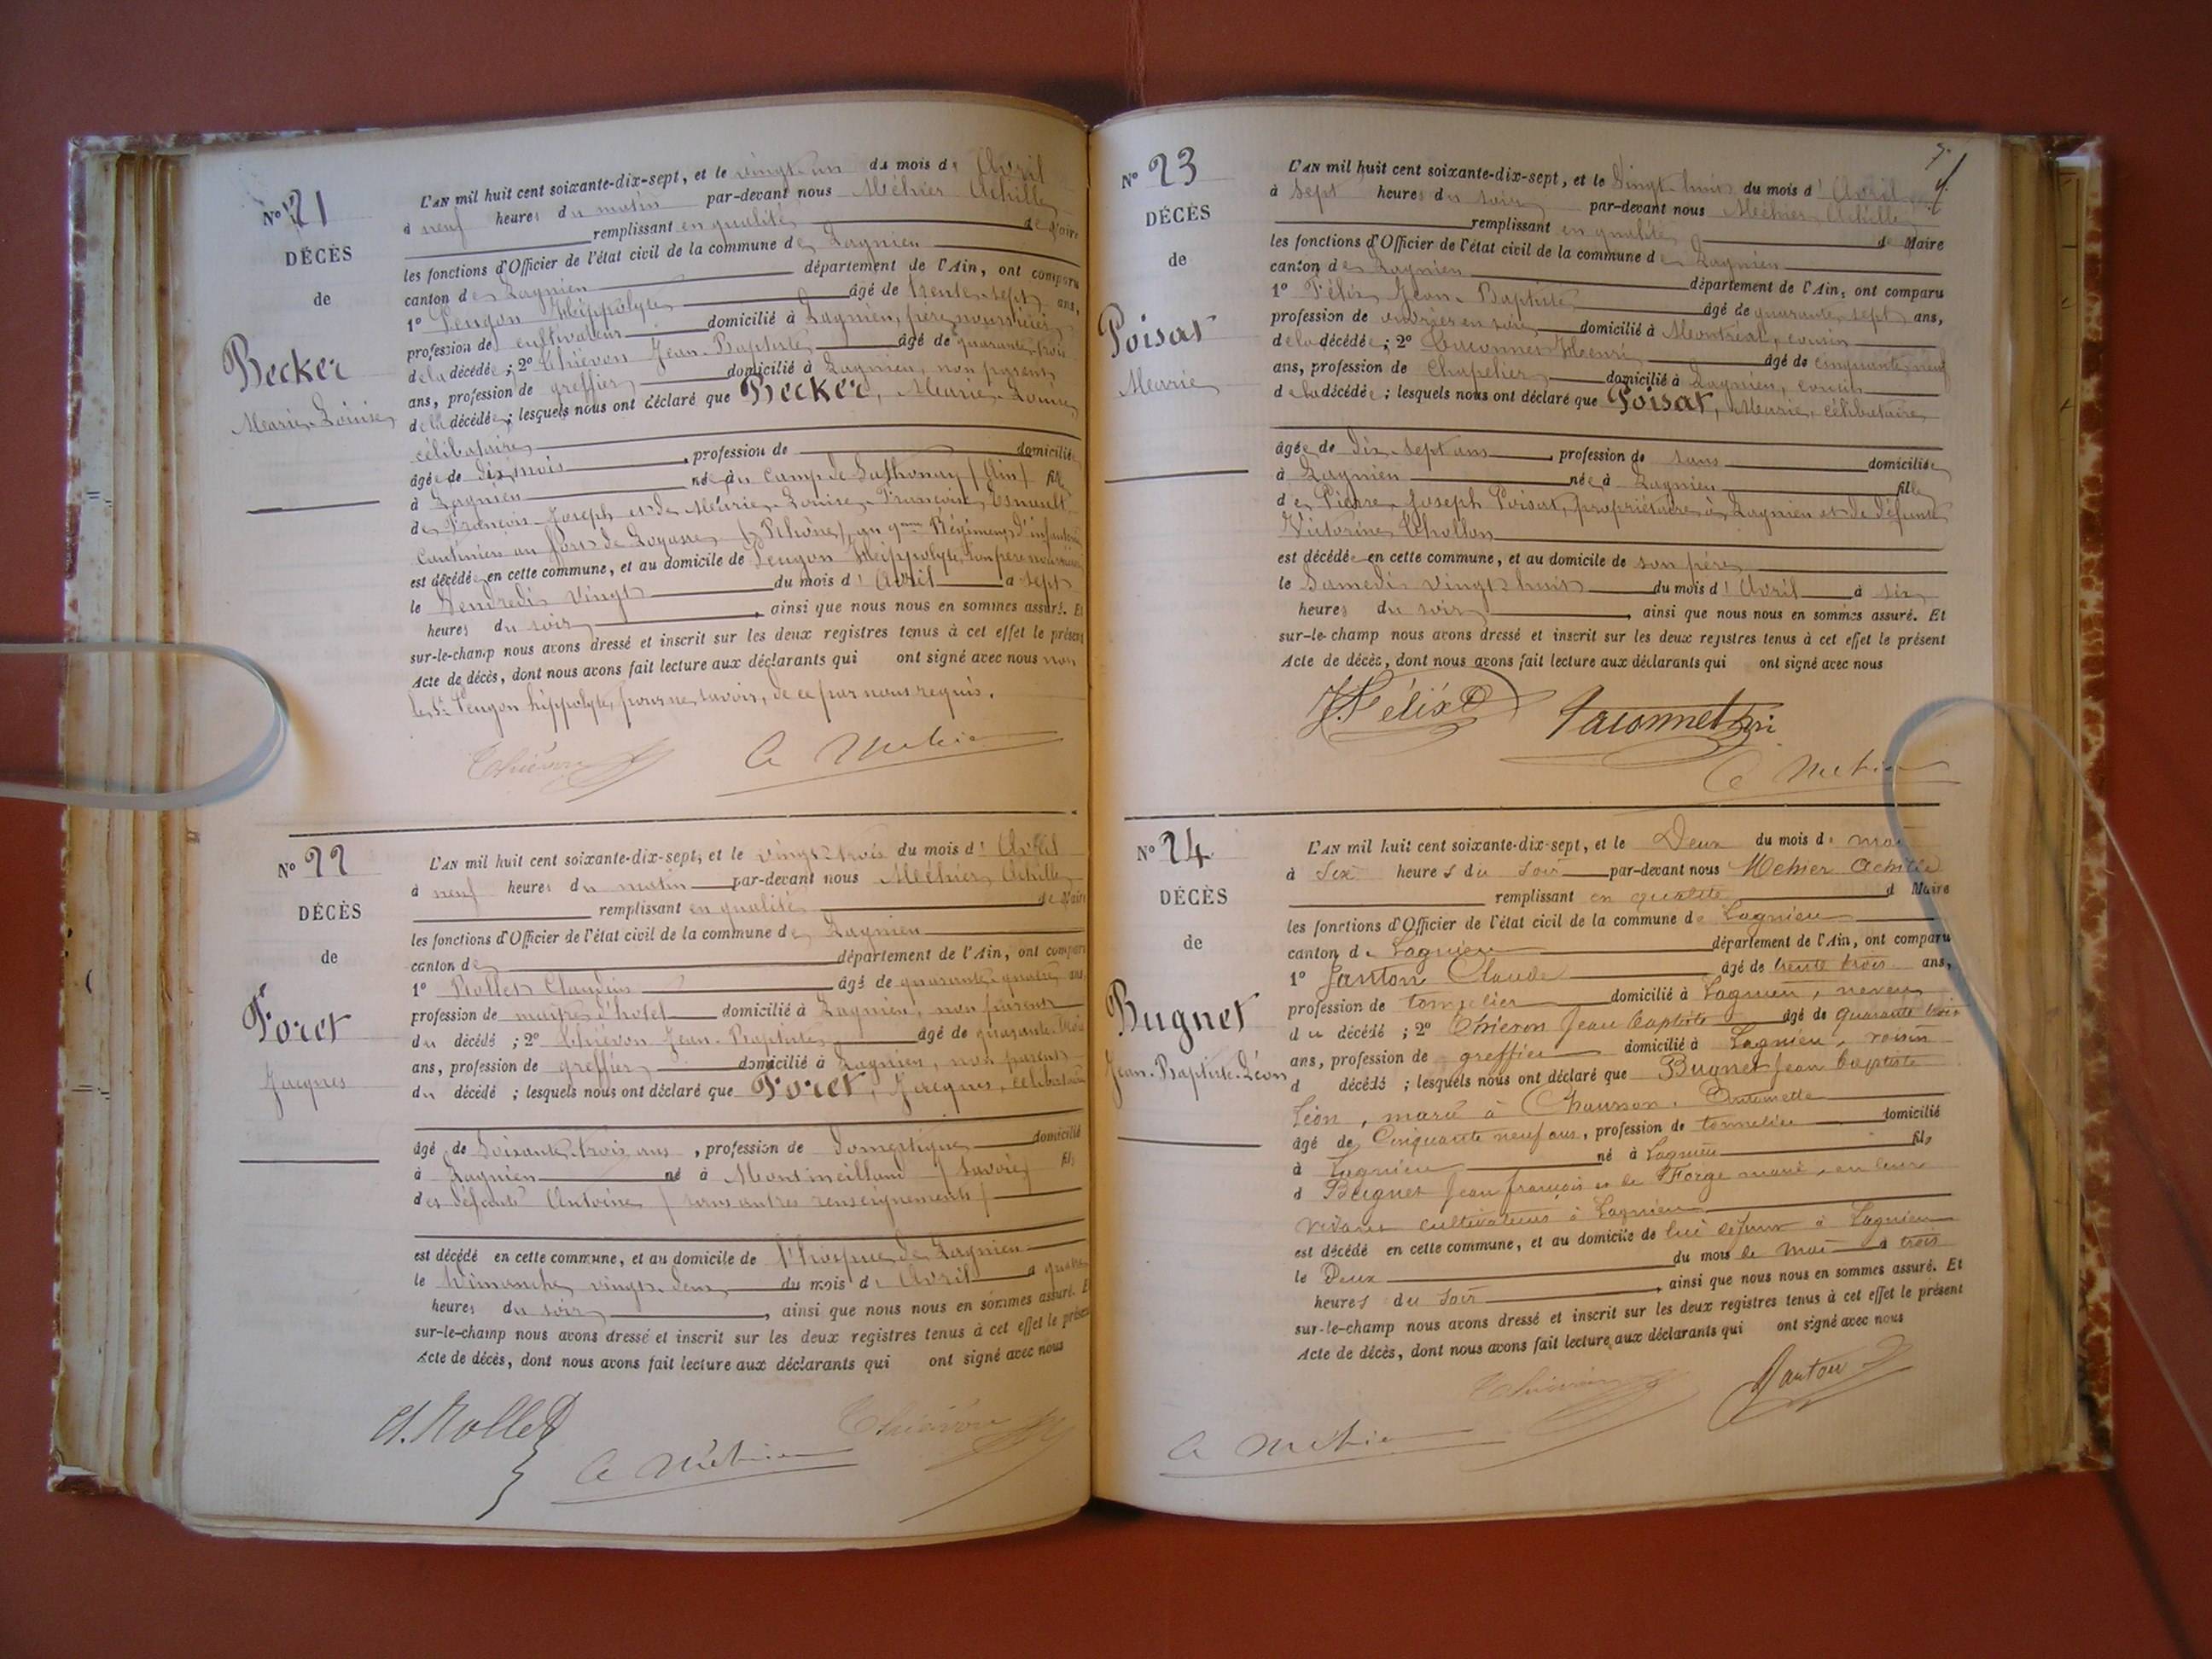 N° 21
DÉCÈS
de
Becker
Marie-Louise
L'AN mil huit cent soixante-dix-sept, et le vingt-un du mois d'Avril
à neuf heures du matin par-devant nous Méhier Achille
remplissant en qualité de Maire
les fonctions d'Officier de l'état civil de la commune de Lagnieu
canton de Lagnieu département de l'Ain, ont comparu
1° Pengon Hippolyte âgé de trente-sept ans,
profession de cultivateur domicilié à Lagnieu, père nourricier
de la décédée; 2° Thiévon Jean-Baptiste âgé de quarante-trois
ans, profession de greffier domicilié à Lagnieu, non parent
de la décédée; lesquels nous ont déclaré que Becker, Marie-Louise,
célibataire
âgée de dix mois, profession de domiciliée
à Lagnieu née au camp de Sathonay (Ain) fille
de François-Joseph et de Marie-Louise-Françoise Esnault
cantinière au fort de Loyasse (Rhône), au 9me Régiment d'infanterie
est décédée en cette commune, et au domicile de Pengon Hippolyte, son père nourricier
le Vendredi vingt du mois d'Avril à sept
heures du soir, ainsi que nous nous en sommes assuré. Et
sur-le-champ nous avons dressé et inscrit sur les deux registres tenus à cet effet le présent
Acte de décès, dont nous avons fait lecture aux déclarants qui ont signé avec nous non
le Sr Pengon hippolyte, pour ne savoir, de ce par nous requis.
Thiévon A Mehier
N° 22
DÉCÈS
de
Foret
Jacques
L'AN mil huit cent soixante-dix-sept, et le vingt-trois du mois d'Avril
à neuf heures du matin par-devant nous Méhier Achille
remplissant en qualité de Maire
les fonctions d'Officier de l'état civil de la commune de Lagnieu
canton de département de l'Ain, ont comparu
1° Rollet Claudius âgé de quarante-quatre ans,
profession de maître d'hôtel domicilié à Lagnieu, non parent
du décédé; 2° Thiévon Jean-Baptiste âgé de quarante-trois
ans, profession de greffier domicilié à Lagnieu, non parent
du décédé; lesquels nous ont déclaré que Foret, Jacques, célibataire
âgé de Soixante-trois ans, profession de Domestique domicilié
à Lagnieu né à Montmeilland (Savoie) fils
des défunts Antoine (sans autres renseignements)
est décédé en cette commune, et au domicile de l'hospice de Lagnieu
le Dimanche vingt-deux du mois d'Avril à quatre
heures du soir, ainsi que nous nous en sommes assuré. Et
sur-le-champ nous avons dressé et inscrit sur les deux registres tenus à cet effet le présent
Acte de décès, dont nous avons fait lecture aux déclarants qui ont signé avec nous
Cl. Rollet A Méhier Thiévon
N° 23
DÉCÈS
de
Poisat
Marie
L'AN mil huit cent soixante-dix-sept, et le Vingt-huit du mois d'Avril
à sept heures du soir par-devant nous Méhier Achille
remplissant en qualité de Maire
les fonctions d'Officier de l'état civil de la commune de Lagnieu
canton de Lagnieu département de l'Ain, ont comparu
1° Félix Jean-Baptiste âgé de quarante-sept ans,
profession de ouvrier en soie domicilié à Montréal, cousin
de la décédée; 2° Taconnet Henri âgé de cinquante-neuf
ans, profession de Chapelier domicilié à Lagnieu, cousin
de la décédée; lesquels nous ont déclaré que Poisat, Marie, célibataire
âgée de dix-sept ans, profession de sans domiciliée
à Lagnieu née à Lagnieu fille
de Pierre-Joseph Poisat, propriétaire à Lagnieu et de défunte
Victorine Chollon
est décédée en cette commune, et au domicile de son père
le Samedi vingt-huit du mois d'Avril à six
heures du soir, ainsi que nous nous en sommes assuré. Et
sur-le-champ nous avons dressé et inscrit sur les deux registres tenus à cet effet le présent
Acte de décès, dont nous avons fait lecture aux déclarants qui ont signé avec nous
J. Félix Taconnet Hri
A Mehier
N° 24
DÉCÈS
de
Bugnet
Jean-Baptiste-Léon
L'AN mil huit cent soixante-dix-sept, et le Deux du mois de mai
à Six heures du Soir par-devant nous Mehier Achille
remplissant en qualité d Maire
les fonctions d'Officier de l'état civil de la commune de Lagnieu
canton de Lagnieu département de l'Ain, ont comparu
1° Janton Claude âgé de trente trois ans,
profession de tonnelier domicilié à Lagnieu, neveu
du décédé; 2° Thievon Jean baptiste âgé de quarante trois
ans, profession de greffier domicilié à Lagnieu, voisin
d décédé; lesquels nous ont déclaré que Bugnet Jean baptiste
Léon, marié à Chausson Antoinette
âgé de Cinquante neuf ans, profession de tonnelier domicilié
à Lagnieu né à Lagnieu fils
d Bugnet Jean françois et de Forge marie, en leur
vivant cultivateurs à Lagnieu
est décédé en cette commune, et au domicile de lui défunt à Lagnieu
le Deux du mois de mai à trois
heures du Soir, ainsi que nous nous en sommes assuré. Et
sur-le-champ nous avons dressé et inscrit sur les deux registres tenus à cet effet le présent
Acte de décès, dont nous avons fait lecture aux déclarants qui ont signé avec nous
Thiévon Janton
A Mehier